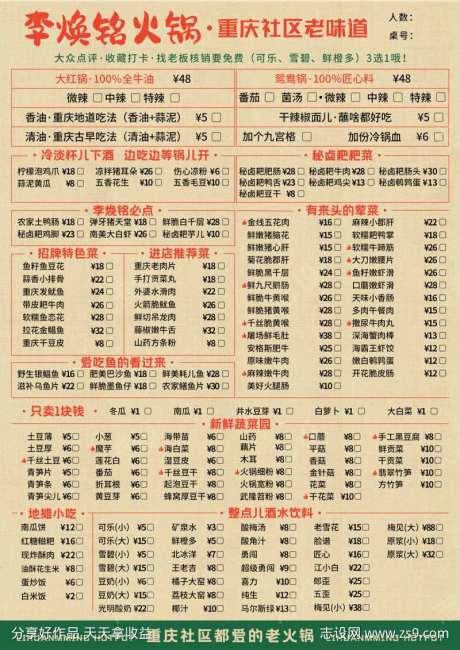 李焕铭火锅·重庆社区老味道
人数：
桌号：
大众点评·收藏打卡·找老板核销要免费（可乐、雪碧、鲜橙多）3选1哦！
大红锅·100%全牛油 ¥48
鸳鸯锅·100%匠心料 ¥48
微辣□ 中辣□ 特辣□
番茄□ 菌汤□·微辣□ 中辣□ 特辣□
香油·重庆地道吃法（香油+蒜泥） ¥5□
干辣椒面儿·蘸啥都好吃 ¥5□
清油·重庆古早吃法（清油+蒜泥） ¥5□
加个九宫格□ 加份冷锅血 ¥6□
·冷淡杯儿下酒 边吃边等锅儿开·
柠檬泡鸡爪 ¥18□ 凉拌猪耳朵 ¥26□ 伤心凉粉 ¥6□
蒜泥黄瓜 ¥8□ 五香花生 ¥10□ 五香毛豆¥10□
·秘卤粑粑菜·
秘卤粑肥肠 ¥28□ 秘卤粑牛肉 ¥28□ 秘卤粑肠头 ¥30□
秘卤粑鸭舌 ¥23□ 秘卤粑鸡尖 ¥13□ 秘卤粑鹌鹑蛋 ¥13□
秘卤粑豆干 ¥8□
·李焕铭必点·
农家土鸭肠 ¥18□ 弹牙猪天堂 ¥18□ 鲜脆白千层 ¥28□
秘卤粑鸡脚 ¥23□ 南美大白虾 ¥26□ 秘卤粑芋儿 ¥10□
·招牌特色菜·
鱼籽鱼豆花 ¥18□
蒜香小排骨 ¥22□
重庆发鱿鱼 ¥24□
带皮粑牛肉 ¥28□
软糯鱼恋花 ¥28□
拉花金鲳鱼 ¥32□
重庆干豆皮 ¥8□
·进店推荐菜·
重庆老肉片 ¥18□
手打贡菜丸 ¥18□
外婆水滑肉 ¥22□
火箭脆鱿鱼 ¥26□
鲜切吊龙肉 ¥28□
藤椒嫩牛舌 ¥32□
山药方条粉 ¥8□
·爱吃鱼的看过来·
野生银鲳鱼 ¥16□ 肥美巴沙鱼 ¥18□ 鲜美耗儿鱼 ¥28□
滋补乌鱼片 ¥22□ 鲜脆墨鱼仔 ¥18□ 农家鳝鱼片 ¥30□
·有来头的荤菜·
金线五花肉 ¥16□ 麻辣小郡肝 ¥22□
鲜嫩猪脑花 ¥15□ 软糯粑鸭掌 ¥18□
鲜嫩猪心肝 ¥15□ 软糯牛蹄筋 ¥26□
菊花脆郡肝 ¥18□ 大刀嫩腰片 ¥26□
鲜脆黑千层 ¥24□ 鱼籽嫩虾滑 ¥26□
鲜九尺鹅肠 ¥28□ 口蘑嫩虾滑 ¥28□
鲜脆牛黄喉 ¥26□ 天味小香肠 ¥16□
鲜脆猪黄喉 ¥28□ 多肉午餐肉 ¥15□
千丝脆黄喉 ¥28□ 撒尿牛肉丸 ¥15□
屠场鲜毛肚 ¥38□ 深海蟹肉棒 ¥13□
安格斯肥牛 ¥25□ 海霸王虾饺 ¥12□
原味嫩牛肉 ¥26□ 嫩白鹌鹑蛋 ¥12□
麻辣嫩牛肉 ¥28□ 开花脆皮肠 ¥12□
美好火腿肠 ¥10□
·只卖1块钱·
冬瓜 ¥1 □ 南瓜 ¥1 □ 井水豆芽 ¥1 □ 白萝卜 ¥1 □ 大白菜 ¥1 □
·新鲜蔬菜园·
土豆薄 ¥5□ 小葱 ¥5□ 海带苗 ¥6□ 山药 ¥8□ 口蘑 ¥8□ 手工黑豆腐 ¥8□
土豆厚 ¥6□ 魔芋 ¥6□ 海白菜 ¥8□ 藕片 ¥8□ 平菇 ¥8□ 鲜贡菜 ¥10□
千丝土豆 ¥6□ 莲花白 ¥6□ 湿豆皮 ¥6□ 木耳 ¥8□ 香菇 ¥8□ 干贡菜 ¥10□
青笋片 ¥5□ 番茄 ¥6□ 千丝豆干 ¥8□ 火锅细粉 ¥8□ 金针菇 ¥8□ 翡翠竹笋 ¥10□
青笋条 ¥6□ 折耳根 ¥6□ 起泡豆干 ¥8□ 火锅宽粉 ¥8□ 花菜 ¥8□ 方竹笋 ¥10□
青笋尖儿 ¥6□ 黄豆芽 ¥6□ 蜂窝厚豆干¥8□ 武隆苕粉 ¥8□ 干花菜 ¥10□
·地摊小吃·
南瓜饼 ¥12□
红糖糍粑 ¥16□
现炸酥肉 ¥22□
油酥花生米 ¥8□
蛋炒饭 ¥6□
白米饭 ¥2□
·整点儿酒水饮料·
可乐(小) ¥5□ 矿泉水 ¥3□ 酸梅汤 ¥8□ 老雪花 ¥15□ 梅见(大)¥88□
可乐(大) ¥15□ 鲜橙多 ¥5□ 酸角汁 ¥8□ 脸谱 ¥18□ 原浆(小) ¥18□
雪碧(小) ¥5□ 北冰洋 ¥7□ 勇闯 ¥8□ 匠心 ¥16□ 原浆(大) ¥32□
雪碧(大) ¥15□ 王老吉 ¥8□ 超级勇闯 ¥9□ 江小白 ¥22□
豆奶(小) ¥6□ 橘子大窑 ¥8□ 喜力 ¥10□ 郎歪 ¥25□
豆奶(大) ¥15□ 荔枝大窑 ¥8□ 纯生 ¥12□ 五歪 ¥25□
光明酸奶 ¥22□ 椰汁 ¥10□ 马尔斯绿¥13□ 梅见(小) ¥38□
重庆社区都爱的老火锅
分享好作品 天天拿收益
志设网 www.zs9.com